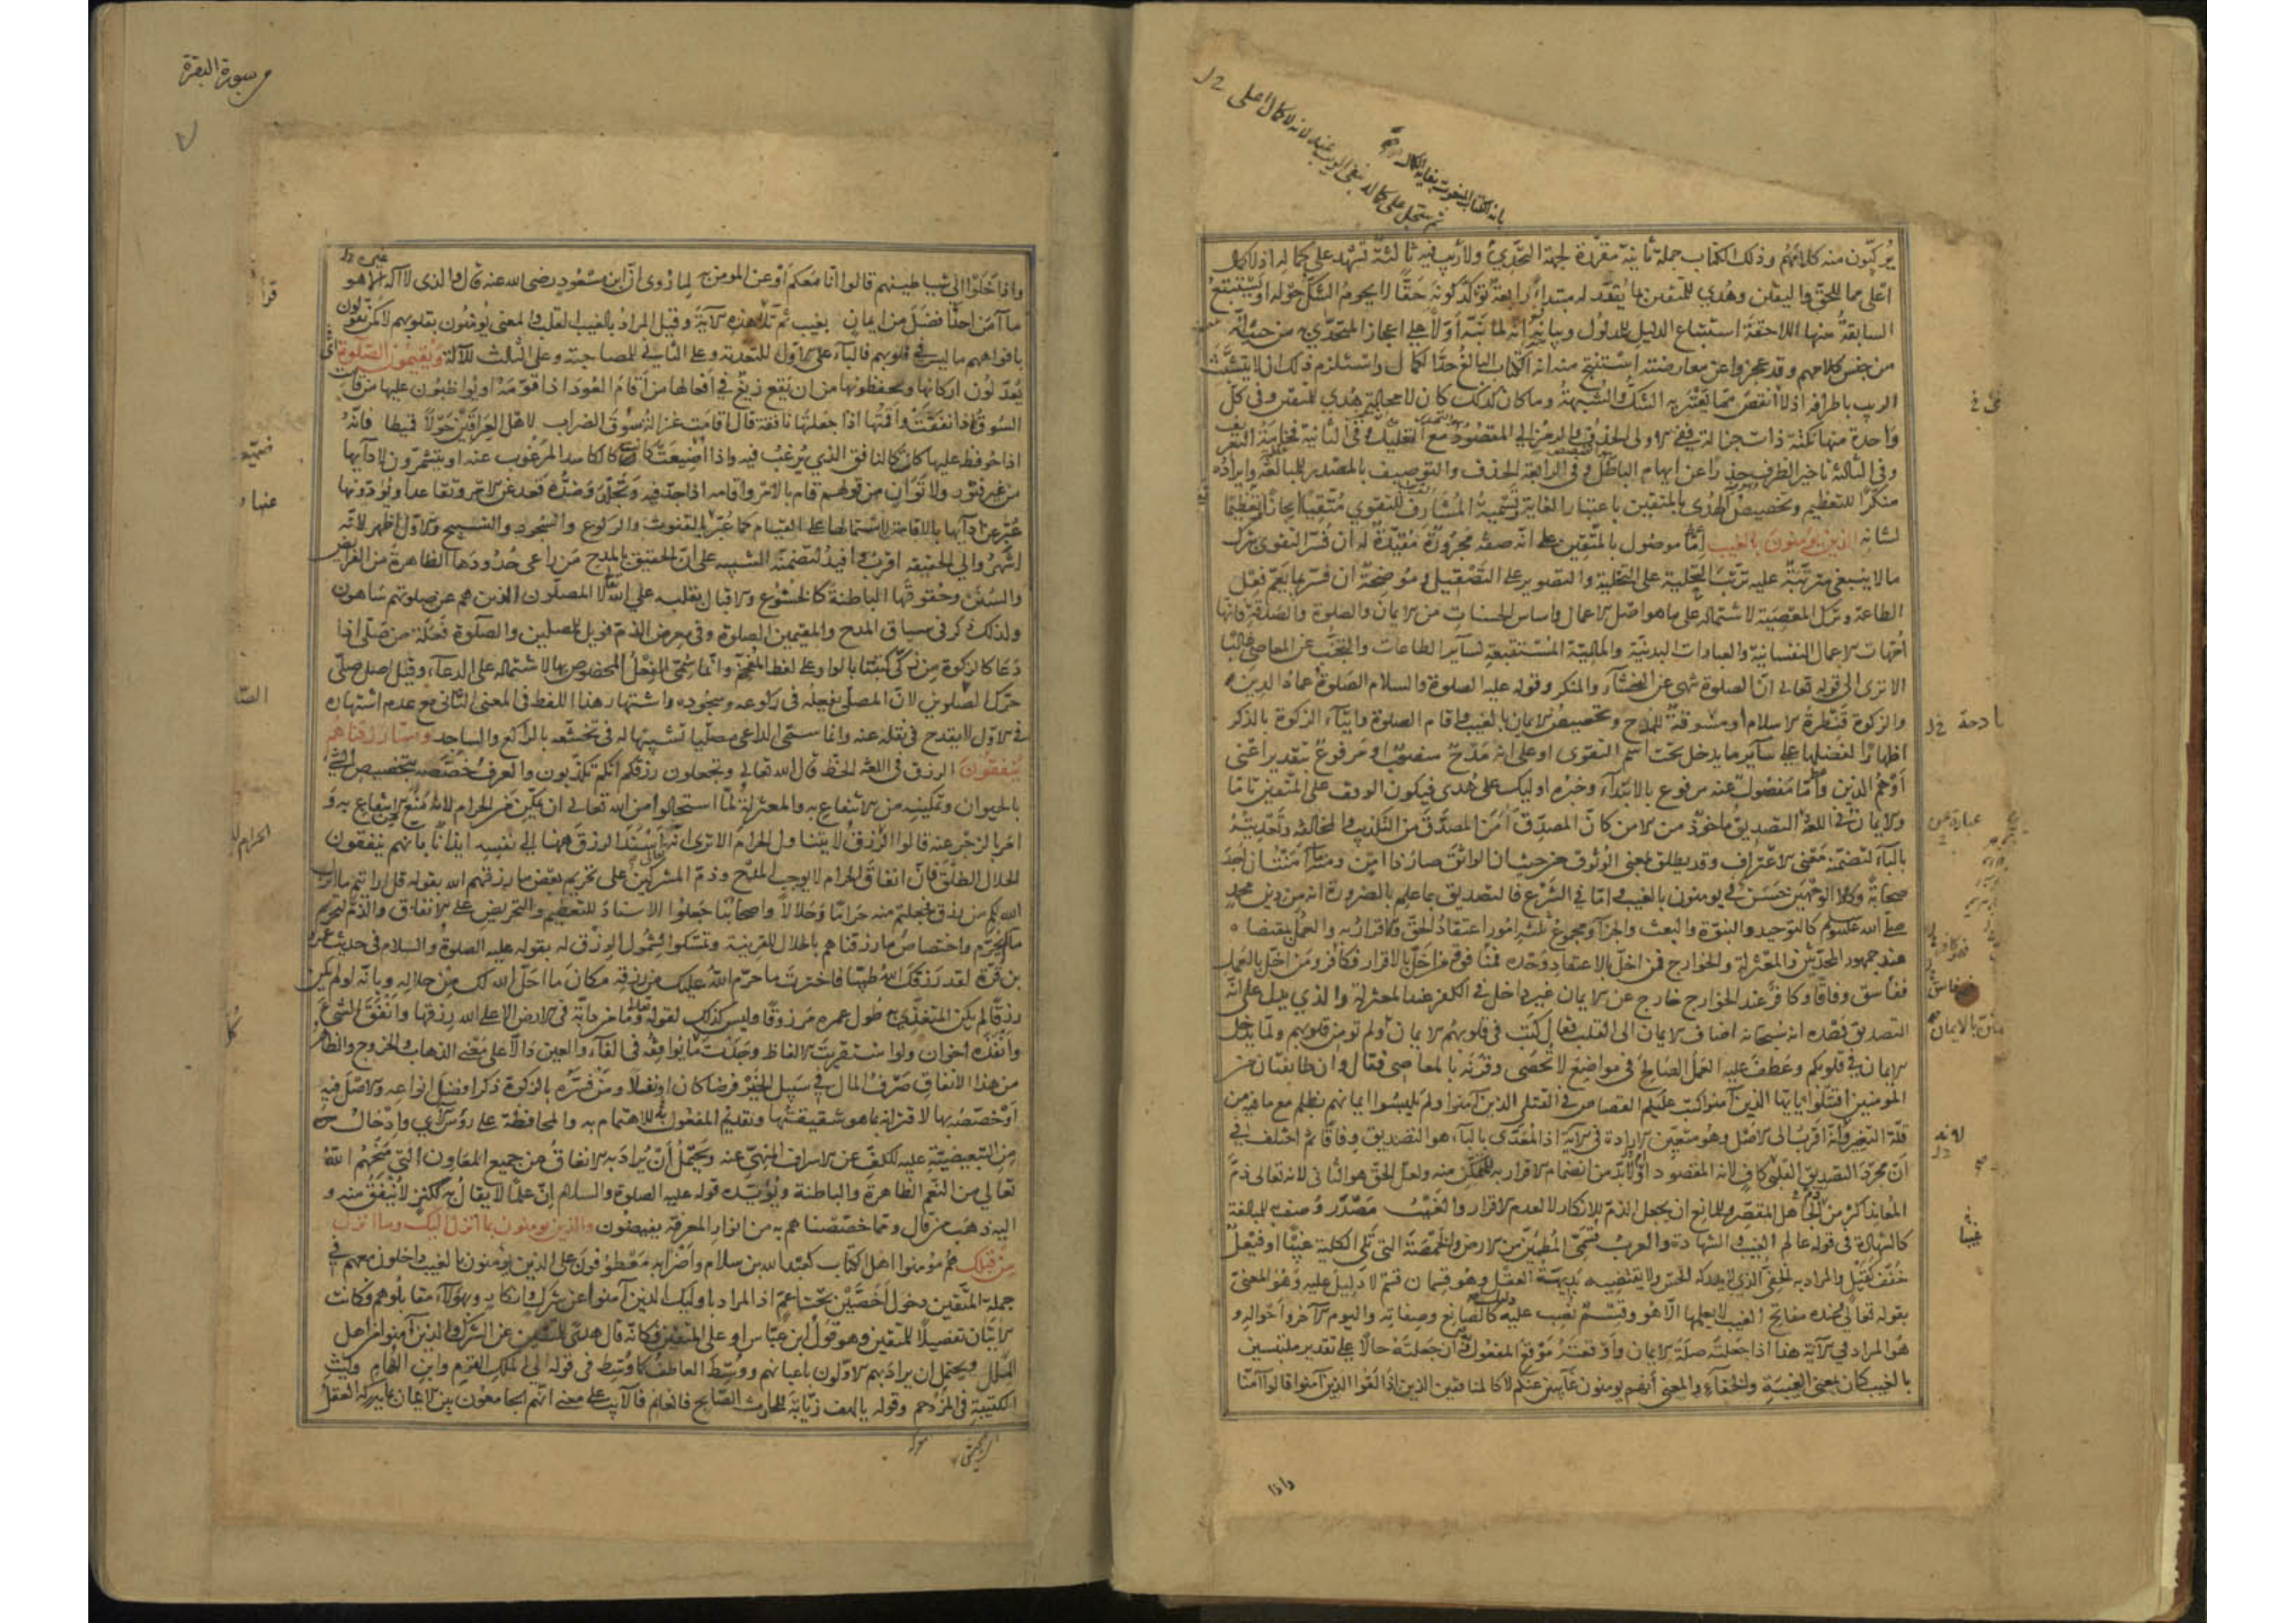 يركبون منه كلامهم وذلك الكتاب جملة ثانية مقررة لجهة التحدي ولا ريب فيه ثالثة تشهد على كماله اذ لا كمال
اعلى مما للحق واليقين وهدى للمتقين بما يقدر له مبتدأ رابعة تؤكد كونه حقا لا يحوم الشك حوله او يستتبع
السابقة منها اللاحقة استتباع الدليل للمدلول وبيانه انه لما نبه اولا على اعجاز المتحدي به من حيث انه
من جنس كلامهم وقد عجزوا عن معارضته استنتج منه انه الكتاب البالغ حد الكمال واستلزم ذلك ان لا يتشبث
الريب باطرافه اذ لا انقص مما يعتريه الشك والشبهة وما كان كذلك كان لا محالة هدى للمتقين وفي كل
واحدة منها نكتة ذات جزالة ففي الاولى الحذف والرمز الى المقصود مع التعليل وفي الثانية فخامة التعريف
وفي الثالثة تاخير الظرف حذرا عن ابهام الباطل وفي الرابعة الحذف والتوصيف بالمصدر للمبالغة وايراده
منكرا للتعظيم وتخصيص الهدى بالمتقين باعتبار الغاية وتسمية المشارف للتقوى متقيا ايجازا وتفخيما
لشانه الذين يؤمنون بالغيب اما موصول بالمتقين على انه صفة مجرورة مقيدة له ان فسر التقوى بترك
ما لا ينبغي مترتبة عليه ترتب التحلية على التخلية والتصوير على التصقيل او موضحة ان فسر بما يعم فعل
الطاعة وترك المعصية لاشتماله على ما هو اصل الاعمال واساس الحسنات من الايمان والصلوة والصدقة فانها
امهات الاعمال النفسانية والعبادات البدنية والمالية المستتبعة لسائر الطاعات والتجنب عن المعاصي غالبا
الا ترى الى قوله تعالى ان الصلوة تنهى عن الفحشاء والمنكر وقوله عليه الصلوة والسلام الصلوة عماد الدين
والزكوة قنطرة الاسلام او مسوقة للمدح وتخصيص الايمان بالغيب واقام الصلوة وايتاء الزكوة بالذكر
اظهارا لفضلها على سائر ما يدخل تحت اسم التقوى او على انه مدح منصوب او مرفوع بتقدير اعني
او هم الذين واما مفصول عنه مرفوع بالابتداء وخبره اولئك على هدى فيكون الوقف على المتقين تاما
والايمان في اللغة التصديق ماخوذ من الامن كان المصدق امن المصدق من التكذيب والمخالفة وتعديته
بالباء لتضمنه معنى الاعتراف وقد يطلق بمعنى الوثوق من حيث ان الواثق صار ذا امن ومنه ما امنت ان اجد
صحابة وكلا الوجهين حسن في يؤمنون بالغيب واما في الشرع فالتصديق بما علم بالضرورة انه من دين محمد
صلى الله عليه وسلم كالتوحيد والنبوة والبعث والجزاء ومجموع ثلثة امور اعتقاد الحق والاقرار به والعمل بمقتضاه
عند جمهور المحدثين والمعتزلة والخوارج فمن اخل بالاعتقاد وحده فمنافق ومن اخل بالاقرار فكافر ومن اخل بالعمل
ففاسق وفاقا وكافر عند الخوارج خارج عن الايمان غير داخل في الكفر عند المعتزلة والذي يدل على انه
التصديق وحده انه سبحانه اضاف الايمان الى القلب فقال كتب في قلوبهم الايمان ولم تؤمن قلوبهم ولما يدخل
الايمان في قلوبكم وعطف عليه العمل الصالح في مواضع لا تحصى وقرنه بالمعاصي فقال وان طائفتان من
المؤمنين اقتتلوا يا ايها الذين آمنوا كتب عليكم القصاص في القتلى الذين آمنوا ولم يلبسوا ايمانهم بظلم مع ما فيه من
قلة التغير وانه اقرب الى الاصل وهو متعين الارادة في الآية اذ المعدى بالباء هو التصديق وفاقا ثم اختلف في
ان مجرد التصديق القلبي كاف لانه المقصود ام لا بد من انضمام الاقرار به للمتمكن منه ولعل الحق هو الثاني لانه تعالى ذم
المعاند اكثر من ذم الجاهل المقصر وللمانع ان يجعل الذم للانكار لا لعدم الاقرار والغيب مصدر وصف به للمبالغة
كالشهادة في قوله عالم الغيب والشهادة والعرب تسمي المطمئن من الارض والخمصة التي تلي الكلية غيبا او فيعل
خفف كقيل والمراد به الخفي الذي لا يدركه الحس ولا يقتضيه بديهة العقل وهو قسمان قسم لا دليل عليه وهو المعني
بقوله تعالى وعنده مفاتح الغيب لا يعلمها الا هو وقسم نصب عليه دليل كالصانع وصفاته واليوم الآخر واحواله و
هو المراد في الآية هذا اذا جعلته صلة الايمان واوقعته موقع المفعول به وان جعلته حالا على تقدير ملتبسين
بالغيب كان بمعنى الغيبة والخفاء والمعنى انهم يؤمنون غائبين عنكم لا كالمنافقين الذين اذا لقوا الذين آمنوا قالوا آمنا
واذا
سورة البقرة
٧
واذا خلوا الى شياطينهم قالوا انا معكم او عن المؤمن به لما روى ان ابن مسعود رضى الله عنه قال والذي لا اله الا هو
ما آمن احد افضل من ايمان بغيب ثم تلا هذه الآية وقيل المراد بالغيب القلب والمعنى يؤمنون بقلوبهم لا كمن يقولون
بافواههم ما ليس في قلوبهم فالباء على الاول للتعدية وعلى الثاني للمصاحبة وعلى الثالث للآلة ويقيمون الصلوة اي
يعدلون اركانها ويحفظونها من ان يقع زيغ في افعالها من اقام العود اذا قومه او يواظبون عليها من قامت
السوق اذا نفقت واقمتها اذا جعلتها نافقة قال اقامت غزالة سوق الضراب لاهل العراقين حولا قميطا فانه
اذا حوفظ عليها كانت كالنافق الذي يرغب فيه واذا اضيعت كانت كالكاسد المرغوب عنه او يتشمرون لادائها
من غير فتور ولا توان من قولهم قام بالامر واقامه اذا جد فيه وتجلد وضده قعد عن الامر وتقاعد او يؤدونها
عبر عن ادائها بالاقامة لاشتمالها على القيام كما عبر عنها بالقنوت والركوع والسجود والتسبيح والاول اظهر لانه
اشهر والى الحقيقة اقرب وافيد لتضمنه التنبيه على ان الحقيق بالمدح من راعى حدودها الظاهرة من الفرائض
والسنن وحقوقها الباطنة كالخشوع والاقبال بقلبه على الله لا المصلون الذين هم عن صلوتهم ساهون
ولذلك ذكر في سياق المدح والمقيمين الصلوة وفي معرض الذم فويل للمصلين والصلوة فعلة من صلى اذا
دعا كالزكوة من زكى كتبتا بالواو على لفظ المفخم وانما سمي الفعل المخصوص بها لاشتماله على الدعاء وقيل اصل صلى
حرك الصلوين لان المصلي يفعله في ركوعه وسجوده واشتهار هذا اللفظ في المعنى الثاني مع عدم اشتهاره
في الاول لا يقدح في نقله عنه وانما سمي الداعي مصليا تشبيها له في تخشعه بالراكع والساجد ومما رزقناهم
ينفقون الرزق في اللغة الحظ قال الله تعالى وتجعلون رزقكم انكم تكذبون والعرف خصصه بتخصيص الشيء
بالحيوان وتمكينه من الانتفاع به والمعتزلة لما استحالوا من الله تعالى ان يمكن من الحرام لانه منع من الانتفاع به و
امر بالزجر عنه قالوا الرزق لا يتناول الحرام الا ترى انه اسند الرزق ههنا الى نفسه ايذانا بانهم ينفقون
الحلال الطلق فان انفاق الحرام لا يوجب المدح وذم المشركين على تحريم بعض ما رزقهم الله بقوله قل ارايتم ما انزل
الله لكم من رزق فجعلتم منه حراما وحلالا واصحابنا جعلوا الاسناد للتعظيم والتحريض على الانفاق والذم لتحريم
ما لم يحرم واختصاص ما رزقناهم بالحلال للقرينة وتمسكوا لشمول الرزق له بقوله عليه الصلوة والسلام في حديث عمرو
بن قرة لقد رزقك الله طيبا فاخترت ما حرم الله عليك من رزقه مكان ما احل الله لك من حلاله وبانه لو لم يكن
رزقا لم يكن المتغذي به طول عمره مرزوقا وليس كذلك لقوله تعالى وما من دابة في الارض الا على الله رزقها وانفق الشيء
وانفده اخوان ولو استقريت الالفاظ وجدت ما يوافقه في الفاء والعين دالا على معنى الذهاب والخروج والظاهر
من هذا الانفاق صرف المال في سبيل الخير فرضا كان او نفلا ومن فسره بالزكوة ذكر افضل انواعه والاصل فيه
او خصصه بها لاقترانه بما هو شقيقتها وتقديم المفعول به للاهتمام به والمحافظة على رؤس الآي وادخال
من التبعيضية عليه للكف عن الاسراف المنهي عنه ويحتمل ان يراد به الانفاق من جميع المعاون التي منحهم الله
تعالى من النعم الظاهرة والباطنة ويؤيده قوله عليه الصلوة والسلام ان علما لا يقال به ككنز لا ينفق منه و
اليه ذهب من قال ومما خصصناهم به من انوار المعرفة يفيضون والذين يؤمنون بما انزل اليك وما انزل
من قبلك هم مؤمنوا اهل الكتاب كعبد الله بن سلام واضرابه معطوفون على الذين يؤمنون بالغيب داخلون معهم في
جملة المتقين دخول اخصين تحت اعم اذ المراد باولئك الذين آمنوا عن شرك وانكار وبهؤلاء مقابلوهم فكانت
الآيتان تفصيلا للمتقين وهو قول ابن عباس او على المتقين وكانه قال هدى للمتقين عن الشرك والذين آمنوا من اهل
الملل ويحتمل ان يراد بهم الاولون باعيانهم ووسط العاطف كما وسط في قوله الى الملك القرم وابن الهمام وليث
الكتيبة في المزدحم وقوله يا لهف زيابة للحارث الصابح فالغانم فالآيب على معنى انهم الجامعون بين الايمان بما يدركه العقل